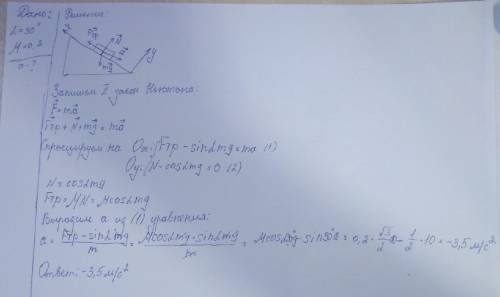 Дано:
L=30°
M=0,2
a-?
Решение:
x
Fтр
N
a
mg
y
Запишем II закон Ньютона:
F=ma
Fтр+N+mg=ma
Спроецируем на Ox:{Fтр-sinLmg=ma (1)
Oy:{N-cosLmg=0 (2)
N=cosLmg
Fтр=MN=McosLmg
Выводим a из (1) уравнения:
a= Fтр-sinLmg / m = McosLmg-sinLmg / m = = 0,2·√3/2 - 1/2·10=-3,5м/с²
Ответ: -3,5м/с²